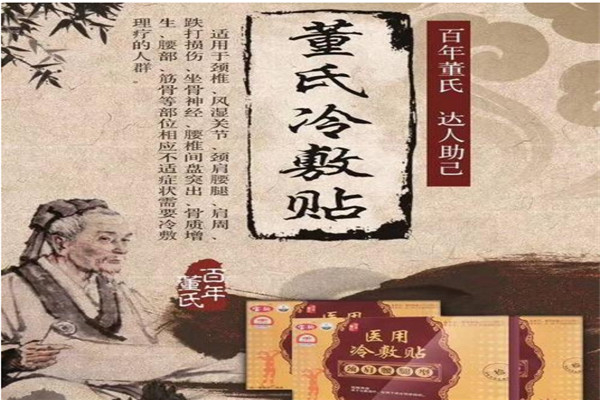 百年董氏 达人助己
董氏冷敷贴
适用于颈椎、风湿关节、颈肩腰腿、肩周、
跌打损伤、坐骨神经、腰椎间盘突出、骨质增
生、腰部、筋骨等部位相应不适症状需要冷敷
理疗的人群。
百年
董氏
医用
冷敷贴
颈肩腰腿型
医用